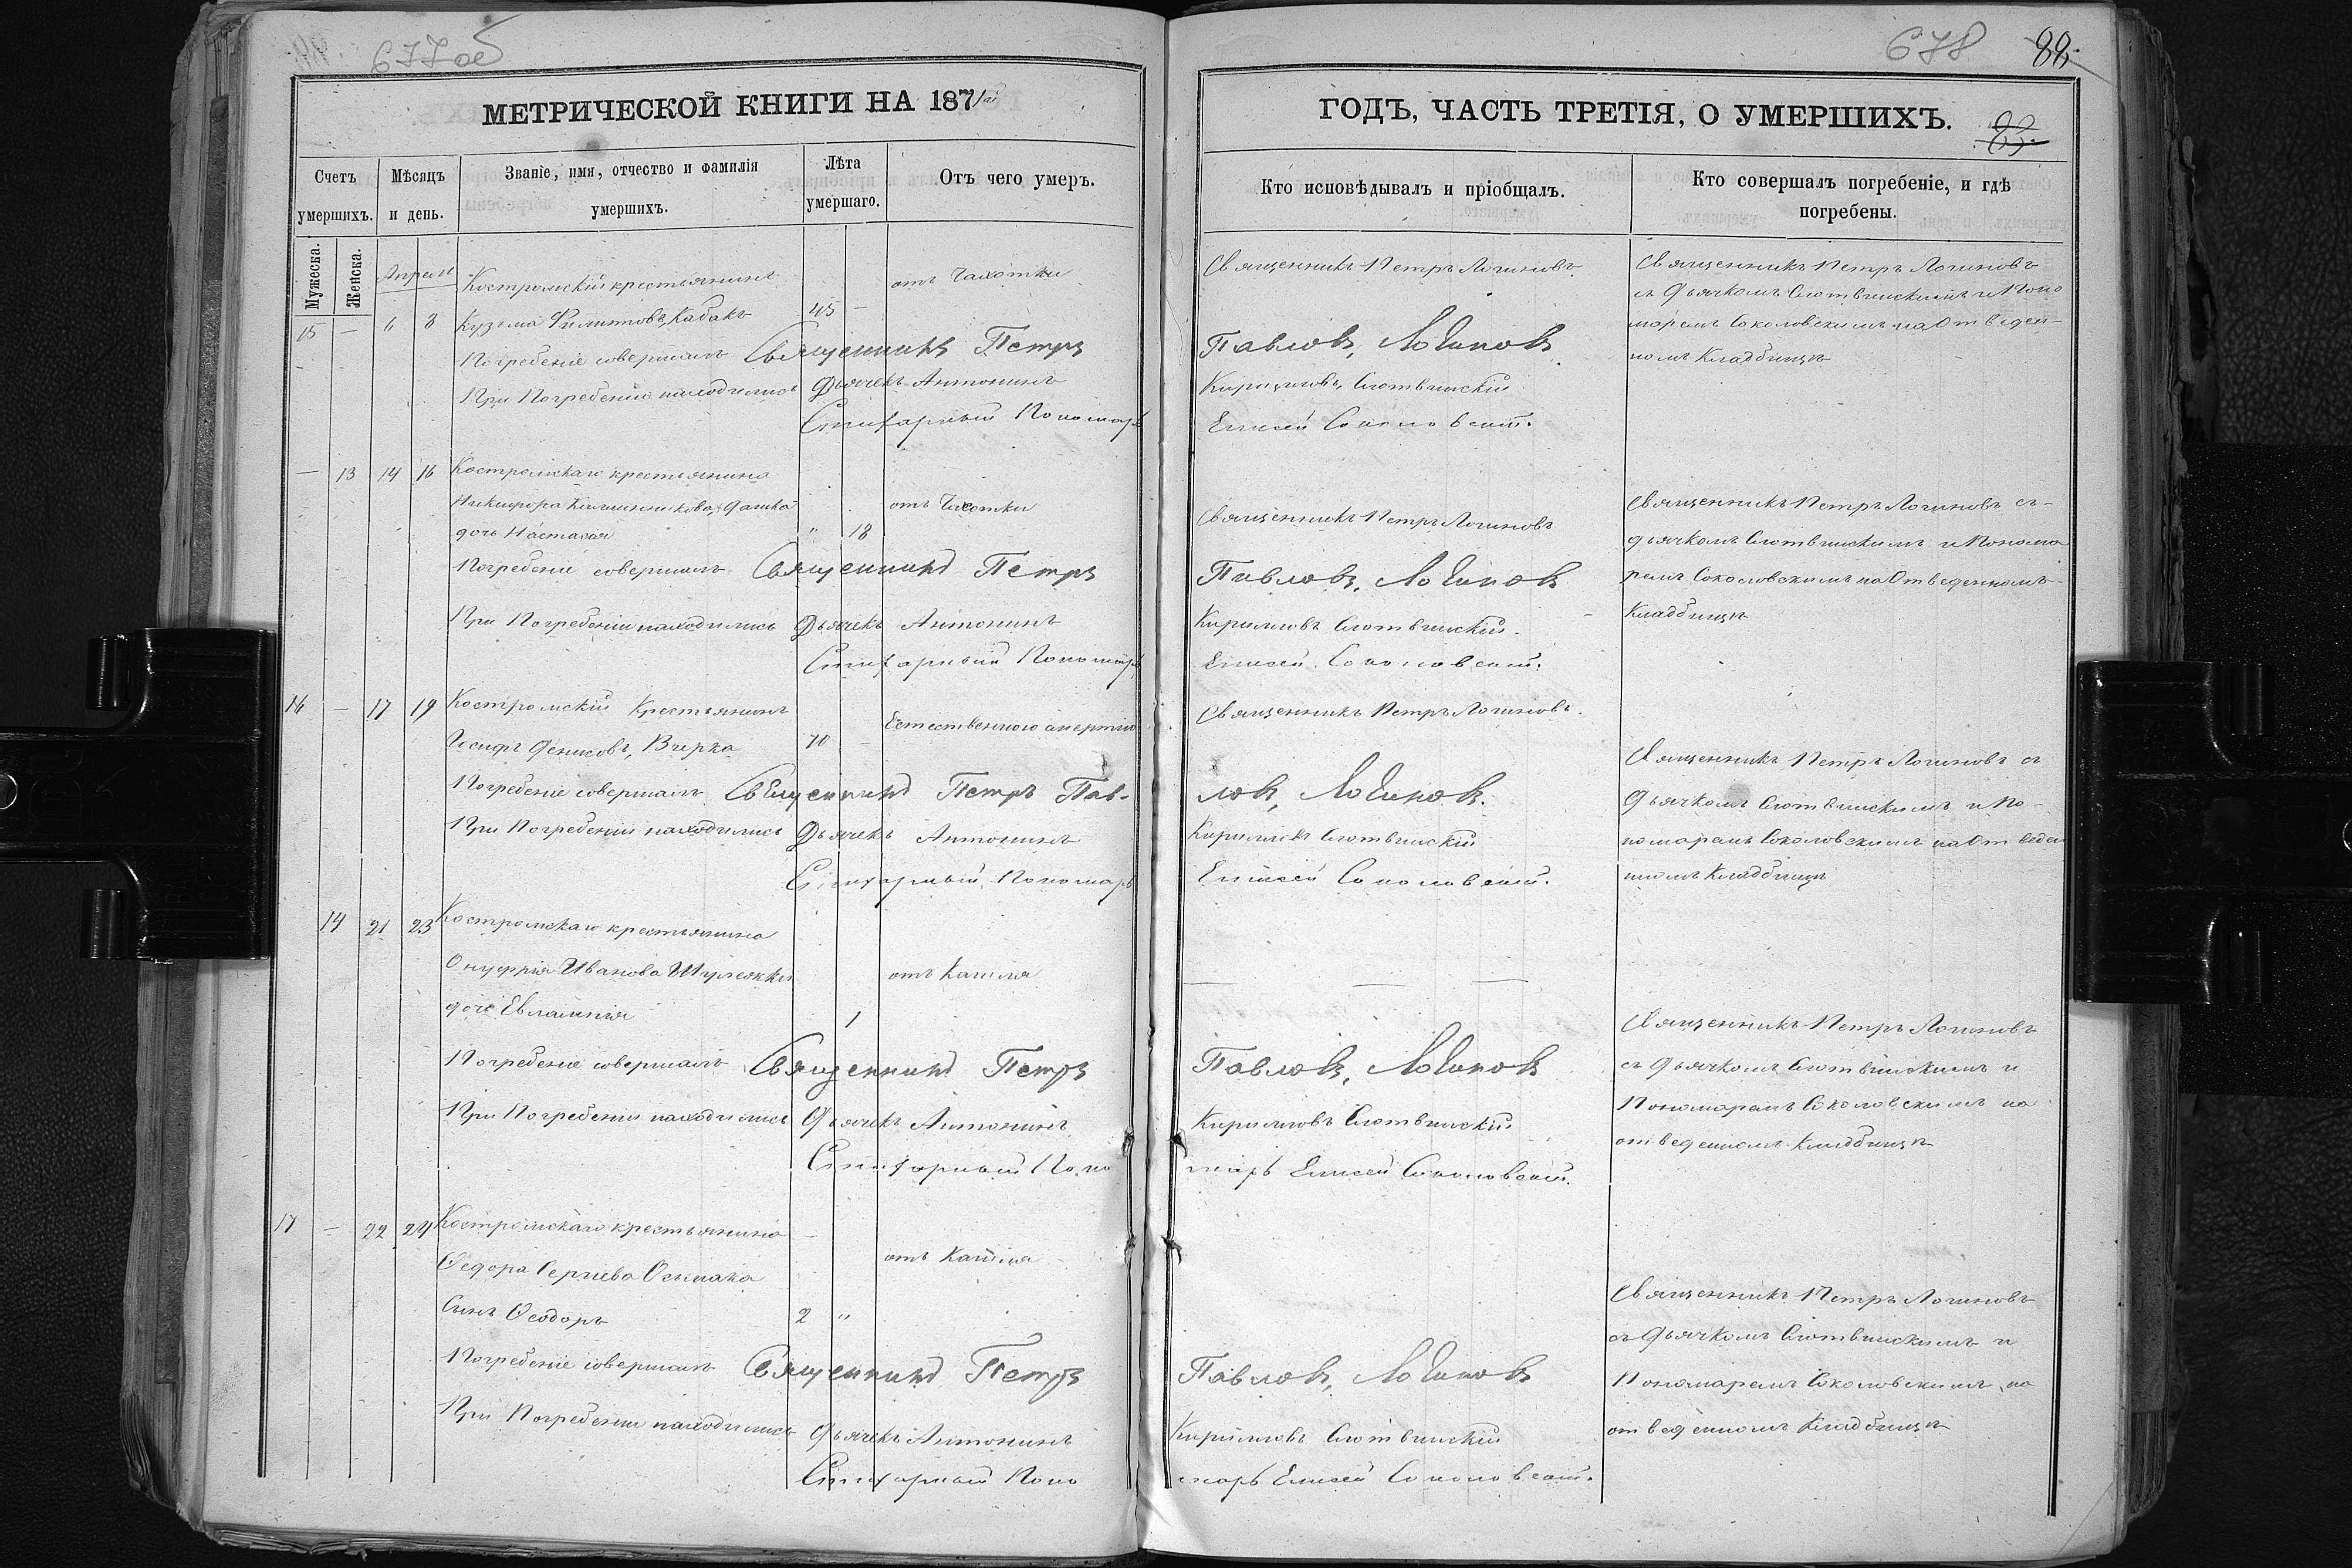 677 об
МЕТРИЧЕСКОЙ КНИГИ НА 1871й
Счетъ умершихъ.
Мужеска.
Женска.
Мѣсяцъ и день.
Званіе, имя, отчество и фамилія умершихъ.
Лѣта умершаго.
Отъ чего умеръ.
Апрель
Костромскій крестьянинъ отъ Чахотки
15 — 6 8 Кузьма Филиповъ, Кабакъ 45 —
Погребеніе совершалъ Священникъ Петръ
При Погребеніи находились Дьячекъ Антонинъ
Стихарный Пономарь
— 13 14 16 Костромскаго крестьянина
Никифора дашка отъ Чахотки
дочь Настасия " 18
Погребеніе совершалъ Священникъ Петръ
При Погребеніи находились Дьячекъ Антонинъ
Стихарный Пономарь
16 — 17 19 Костромскій Крестьянинъ Естественною смертію
Іосифъ Денисовъ, 70 —
Погребеніе совершалъ Священникъ Петръ Пав-
При Погребеніи находились Дьячекъ Антонинъ
Стихарный Пономарь
14 21 23 Костромскаго крестьянина
Онуфрія Иванова отъ Кашля
дочь Евлампия 1
Погребеніе совершалъ Священникъ Петръ
При Погребеніи находились Дьячекъ Антонинъ
Стихарный Поно
17 — 22 24 Костромскаго крестьянина
Федора Сергиева отъ Кашля
Сынъ Феодоръ 2 "
Погребеніе совершалъ Священникъ Петръ
При Погребеніи находились Дьячекъ Антонинъ
Стихарный Поно
678 88
ГОДЪ, ЧАСТЬ ТРЕТІЯ, О УМЕРШИХЪ.
Кто исповѣдывалъ и пріобщалъ.
Кто совершалъ погребеніе, и гдѣ погребены.
Священникъ Петръ Логиновъ
Павловъ, Логиновъ
Кирилловъ, Слотвинскій
Елисей Соколовскій.
Священникъ Петръ Логиновъ
съ Дьячкомъ Слотвинскимъ и Поно
маремъ Соколовскимъ на Отведен-
номъ Кладбищѣ
Священникъ Петръ Логиновъ
Павловъ, Логиновъ
Кирилловъ Слотвинскій.
Елисей Соколовскій.
Священникъ Петръ Логиновъ съ-
дьячкомъ Слотвинскимъ и Понома
ремъ Соколовскимъ на Отведенномъ-
Кладбищѣ
Священникъ Петръ Логиновъ.
ловъ, Логиновъ.
Слотвинскій
Елисей Соколовскій.
Священникъ Петръ Логиновъ съ
Дьячкомъ Слотвинскимъ и По-
номаремъ Соколовскимъ на Отведен
номъ Кладбищѣ
— — —
Павловъ, Логиновъ
Кирилловъ Слотвинскій
марь Елисей Соколовскій.
Священникъ Петръ Логиновъ
съ Дьячкомъ Слотвинскимъ и
Пономаремъ Соколовскимъ на
отведенномъ Кладбищѣ
Павловъ, Логиновъ
Кирилловъ Слотвинскій
марь Елисей Соколовскій.
Священникъ Петръ Логиновъ
съ Дьячкомъ Слотвинскимъ и
Пономаремъ Соколовскимъ на
отведенномъ Кладбищѣ